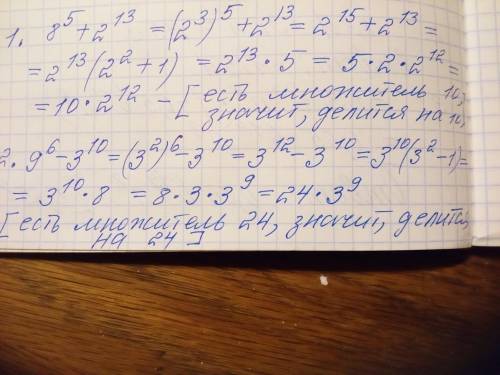 1. 8⁵+2¹³ =(2³)⁵+2¹³=2¹⁵+2¹³=
=2¹³(2²+1) =2¹³·5 = 5·2·2¹²=
=10·2¹² - [есть множитель 10,
значит, делится на 10,
2. 9⁶-3¹⁰=(3²)⁶-3¹⁰=3¹²-3¹⁰=3¹⁰(3²-1)=
= 3¹⁰·8 =8·3·3⁹=24·3⁹
[есть множитель 24, значит, делится
на 24]